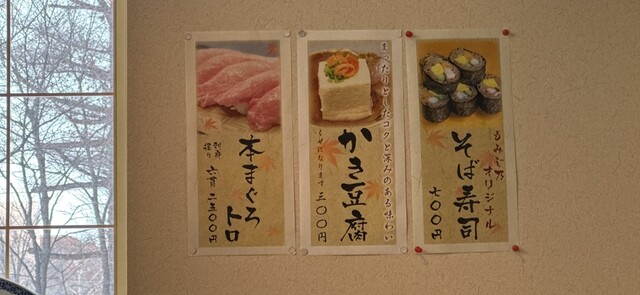 もみじ乃
オリジナル
そば寿司
七〇〇円
まったりとしたコクと深みのある味わい
かき豆腐
くせになります
三〇〇円
本まぐろ
トロ
六貫 二三〇〇円